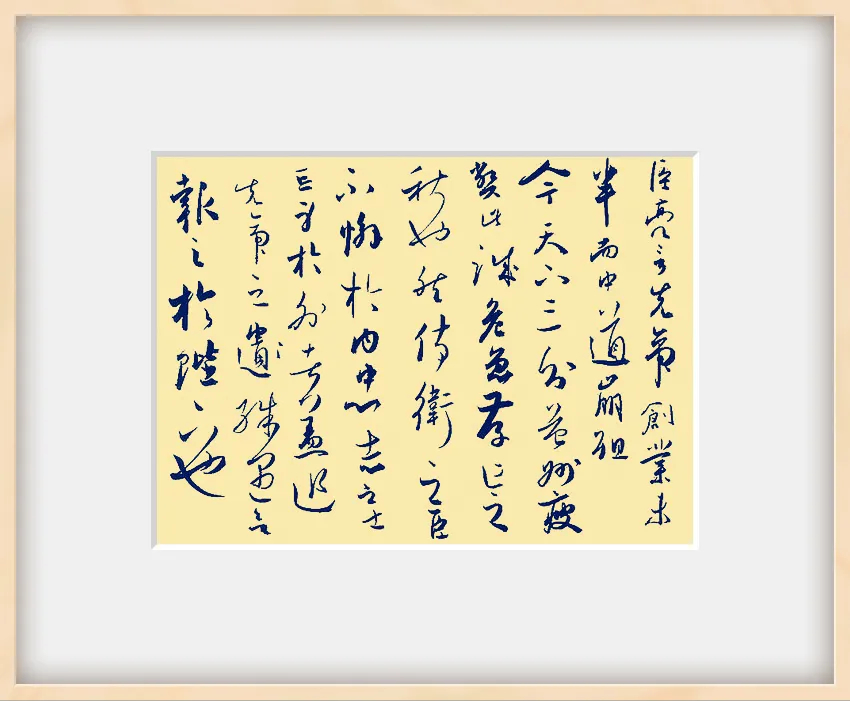 臣亮言先帝創業未
半而中道崩殂
今天下三分益州疲
弊此誠危急存亡之
秋也然侍衛之臣
不懈於內忠志之士
亡身於外者蓋追
先帝之遺殊遇
報之於陛下也